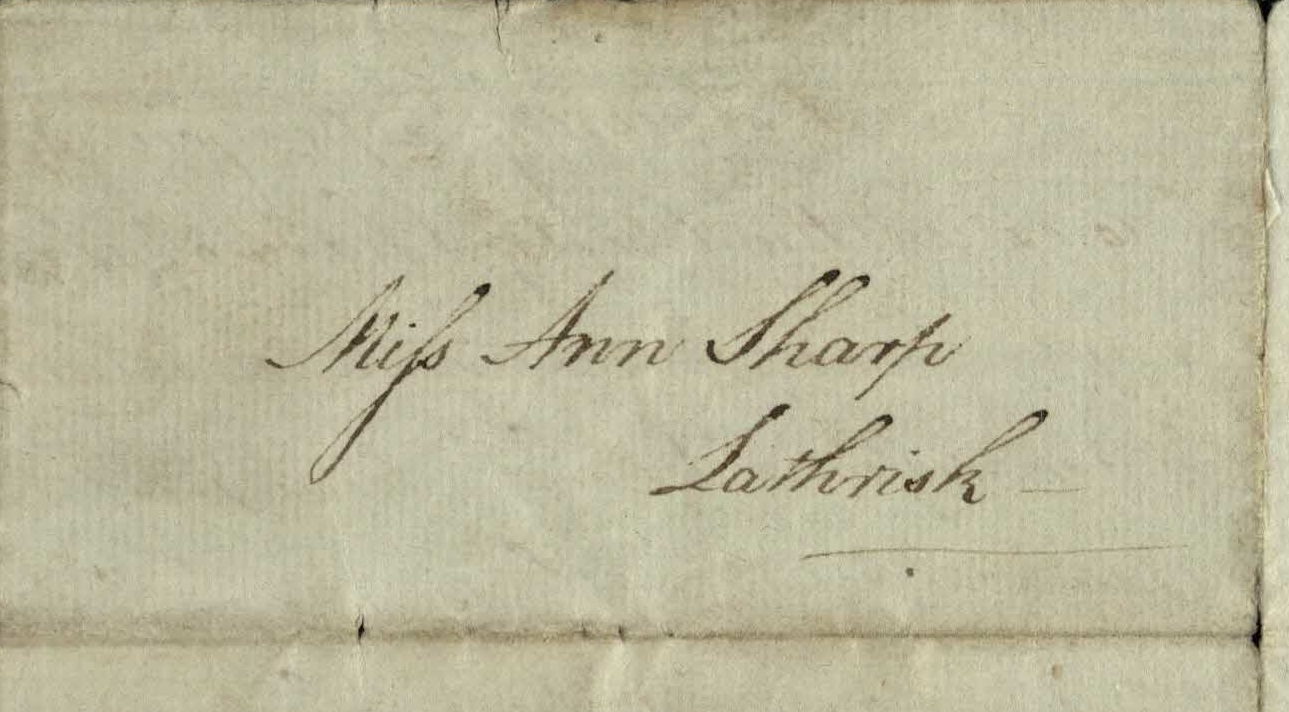 Miſs Ann Sharp
Lathrisk —